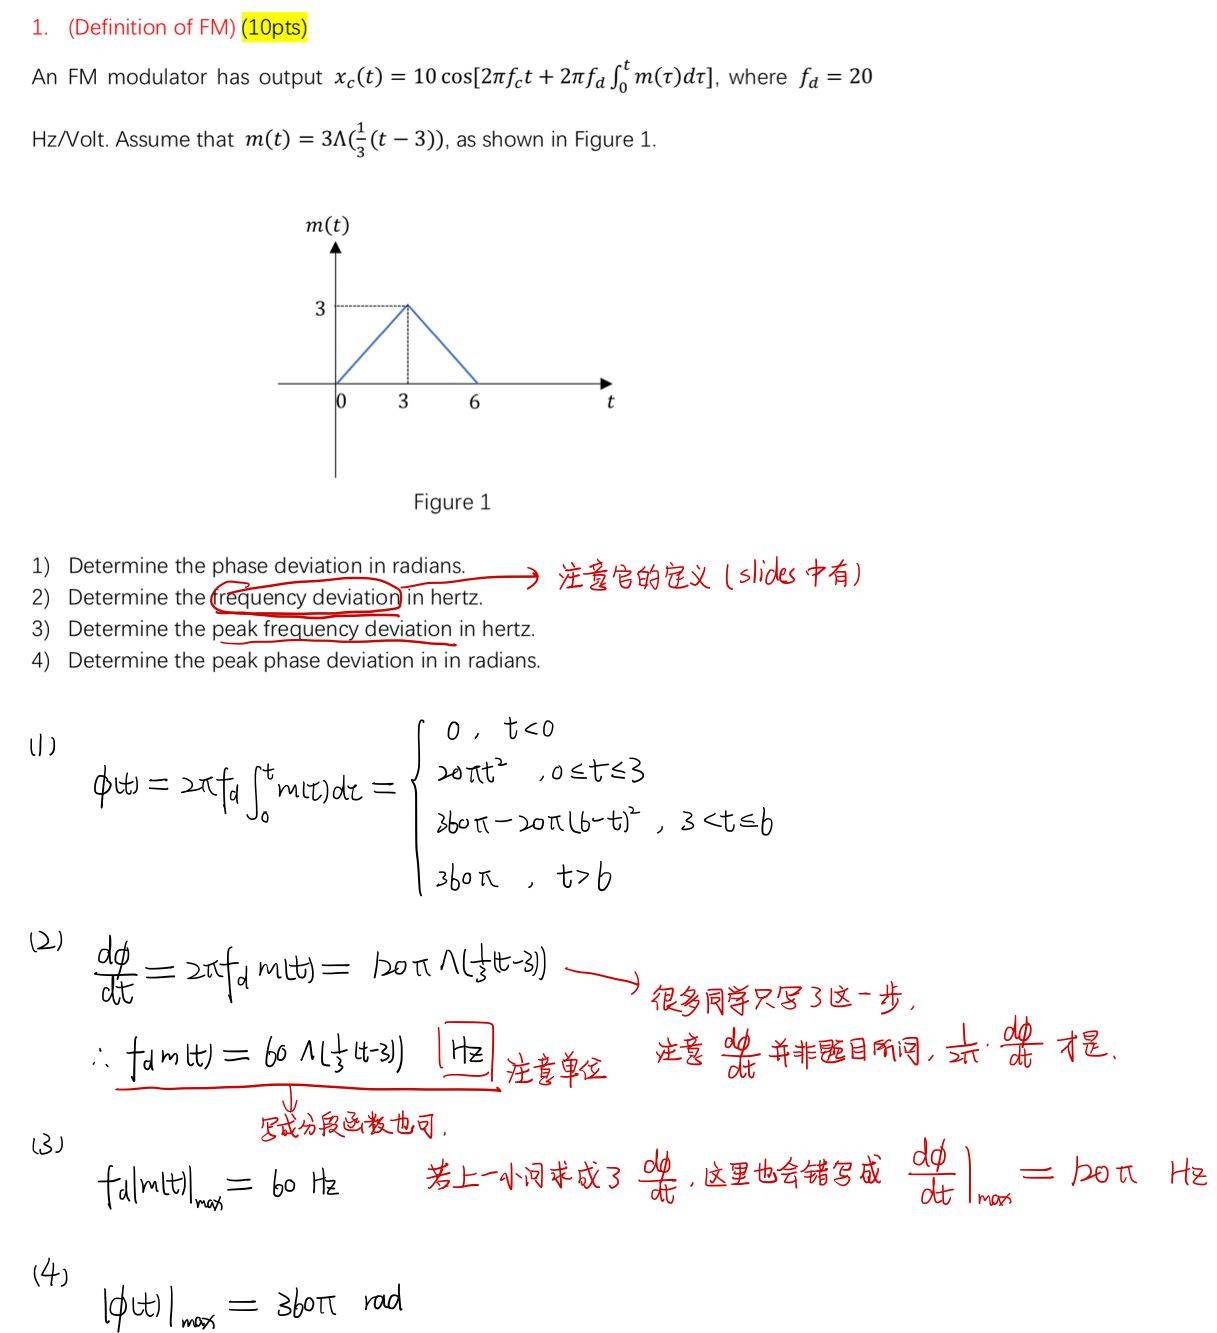 1. (Definition of FM) (10pts)
An FM modulator has output x_c(t) = 10 cos[2πf_c t + 2πf_d ∫_0^t m(τ)dτ], where f_d = 20
Hz/Volt. Assume that m(t) = 3Λ(1/3(t − 3)), as shown in Figure 1.
m(t)
3
0 3 6 t
Figure 1
1) Determine the phase deviation in radians.
2) Determine the frequency deviation in hertz.
注意它的定义 (slides 中有)
3) Determine the peak frequency deviation in hertz.
4) Determine the peak phase deviation in in radians.
(1)
ϕ(t) = 2πf_d ∫_0^t m(τ)dτ =
0, t<0
20πt², 0≤t≤3
360π−20π(6−t)², 3<t≤6
360π, t>6
(2) dϕ/dt = 2πf_d m(t) = 120π Λ(1/3(t−3))
很多同学只写了这一步,
注意 dϕ/dt 并非题目所问, 1/2π · dϕ/dt 才是.
∴ f_d m(t) = 60 Λ(1/3(t−3)) Hz 注意单位
写成分段函数也可.
(3)
f_d|m(t)|_max = 60 Hz
若上一小问求成了 dϕ/dt, 这里也会错写成 dϕ/dt|_max = 120π Hz
(4)
|ϕ(t)|_max = 360π rad